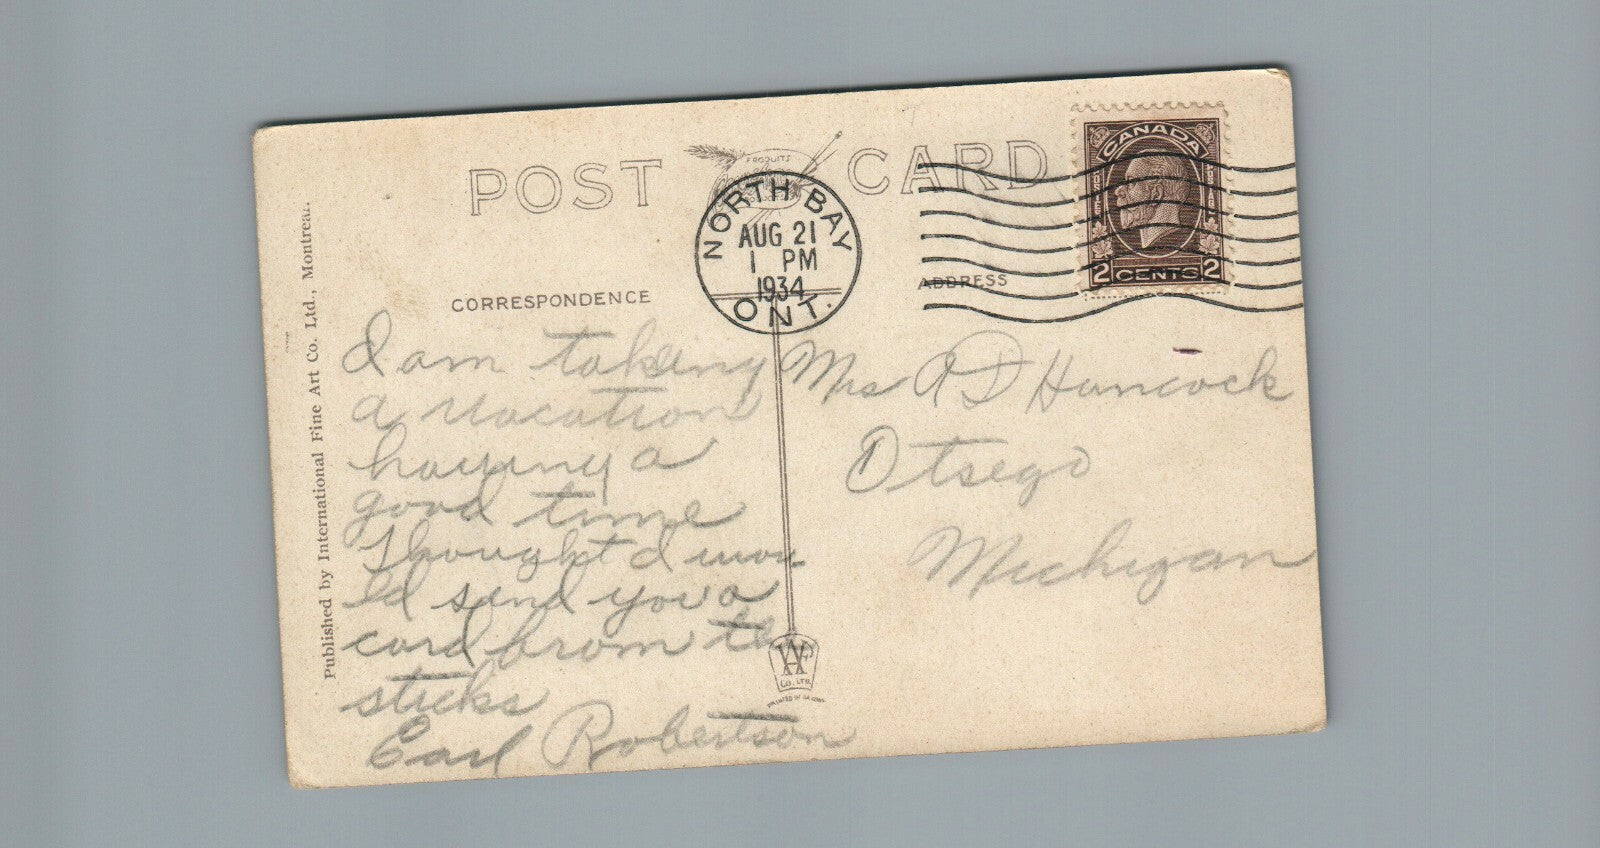 POST CARD
PRODUITS
NORTH BAY
AUG 21
1 PM
1934
ONT.
CANADA
2 CENTS 2
CORRESPONDENCE
ADDRESS
Published by International Fine Art Co. Ltd., Montreal.
I am taking
a vacation
having a
good time
Thought I wou
ld send you a
card from the
sticks
Earl Robertson
Mrs A D Hancock
Otsego
Michigan
Co. LTD.